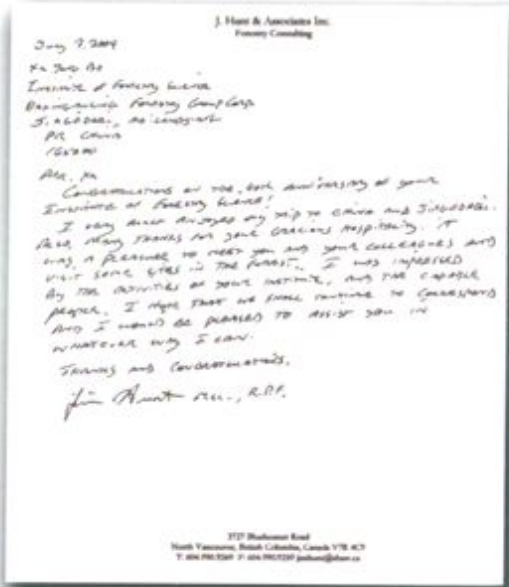 J. Hunt & Associates Inc.
Forestry Consulting
July 7, 2004
Xu
Institute of Forestry Science
Forestry Group Corp.
PR China
165000
Mr. Xu
Congratulations on the anniversary of your
Institute of Forestry Science!
I very much enjoyed my trip to China and
many thanks for your gracious hospitality. It
was a pleasure to meet you and your colleagues and
visit some sites in the forest. I was impressed
by the activities of your institute, and the capable
people. I hope that we shall continue to correspond
and I would be pleased to assist you in
whatever way I can.
Thanks and Congratulations,
Jim Hunt R.P.F.
3727 Road
North Vancouver, British Columbia, Canada